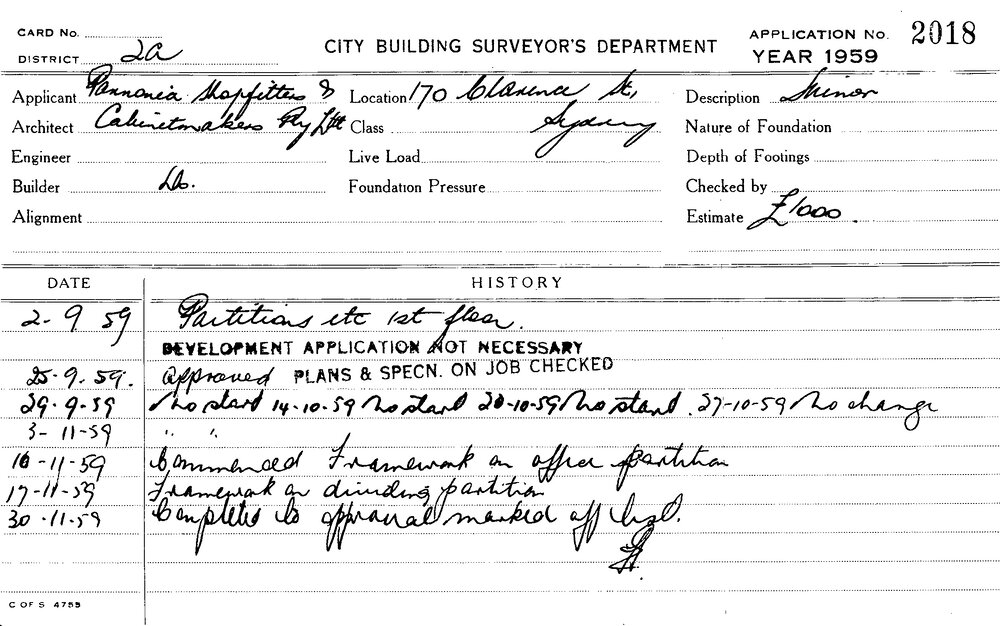 CARD No.
DISTRICT 2a
CITY BUILDING SURVEYOR'S DEPARTMENT
APPLICATION No. 2018
YEAR 1959
Applicant Pannonia Shopfitters & Location 170 Clarence St, Description Minor
Architect Cabinetmakers Pty Ltd Class Sydney Nature of Foundation
Engineer Live Load Depth of Footings
Builder Do. Foundation Pressure Checked by
Alignment Estimate £1000
DATE HISTORY
2-9 59 Partitions etc 1st floor.
DEVELOPMENT APPLICATION NOT NECESSARY
25-9.59. Approved PLANS & SPECN. ON JOB CHECKED
29-9-59 No start 14-10-59 No start 20-10-59 No start. 27-10-59 No change
3-11-59 " "
10-11-59 Commenced Framework on office partition
17-11-59 Framework on dividing partition
30-11-59 Completed to approval marked off list.
C OF S 4755